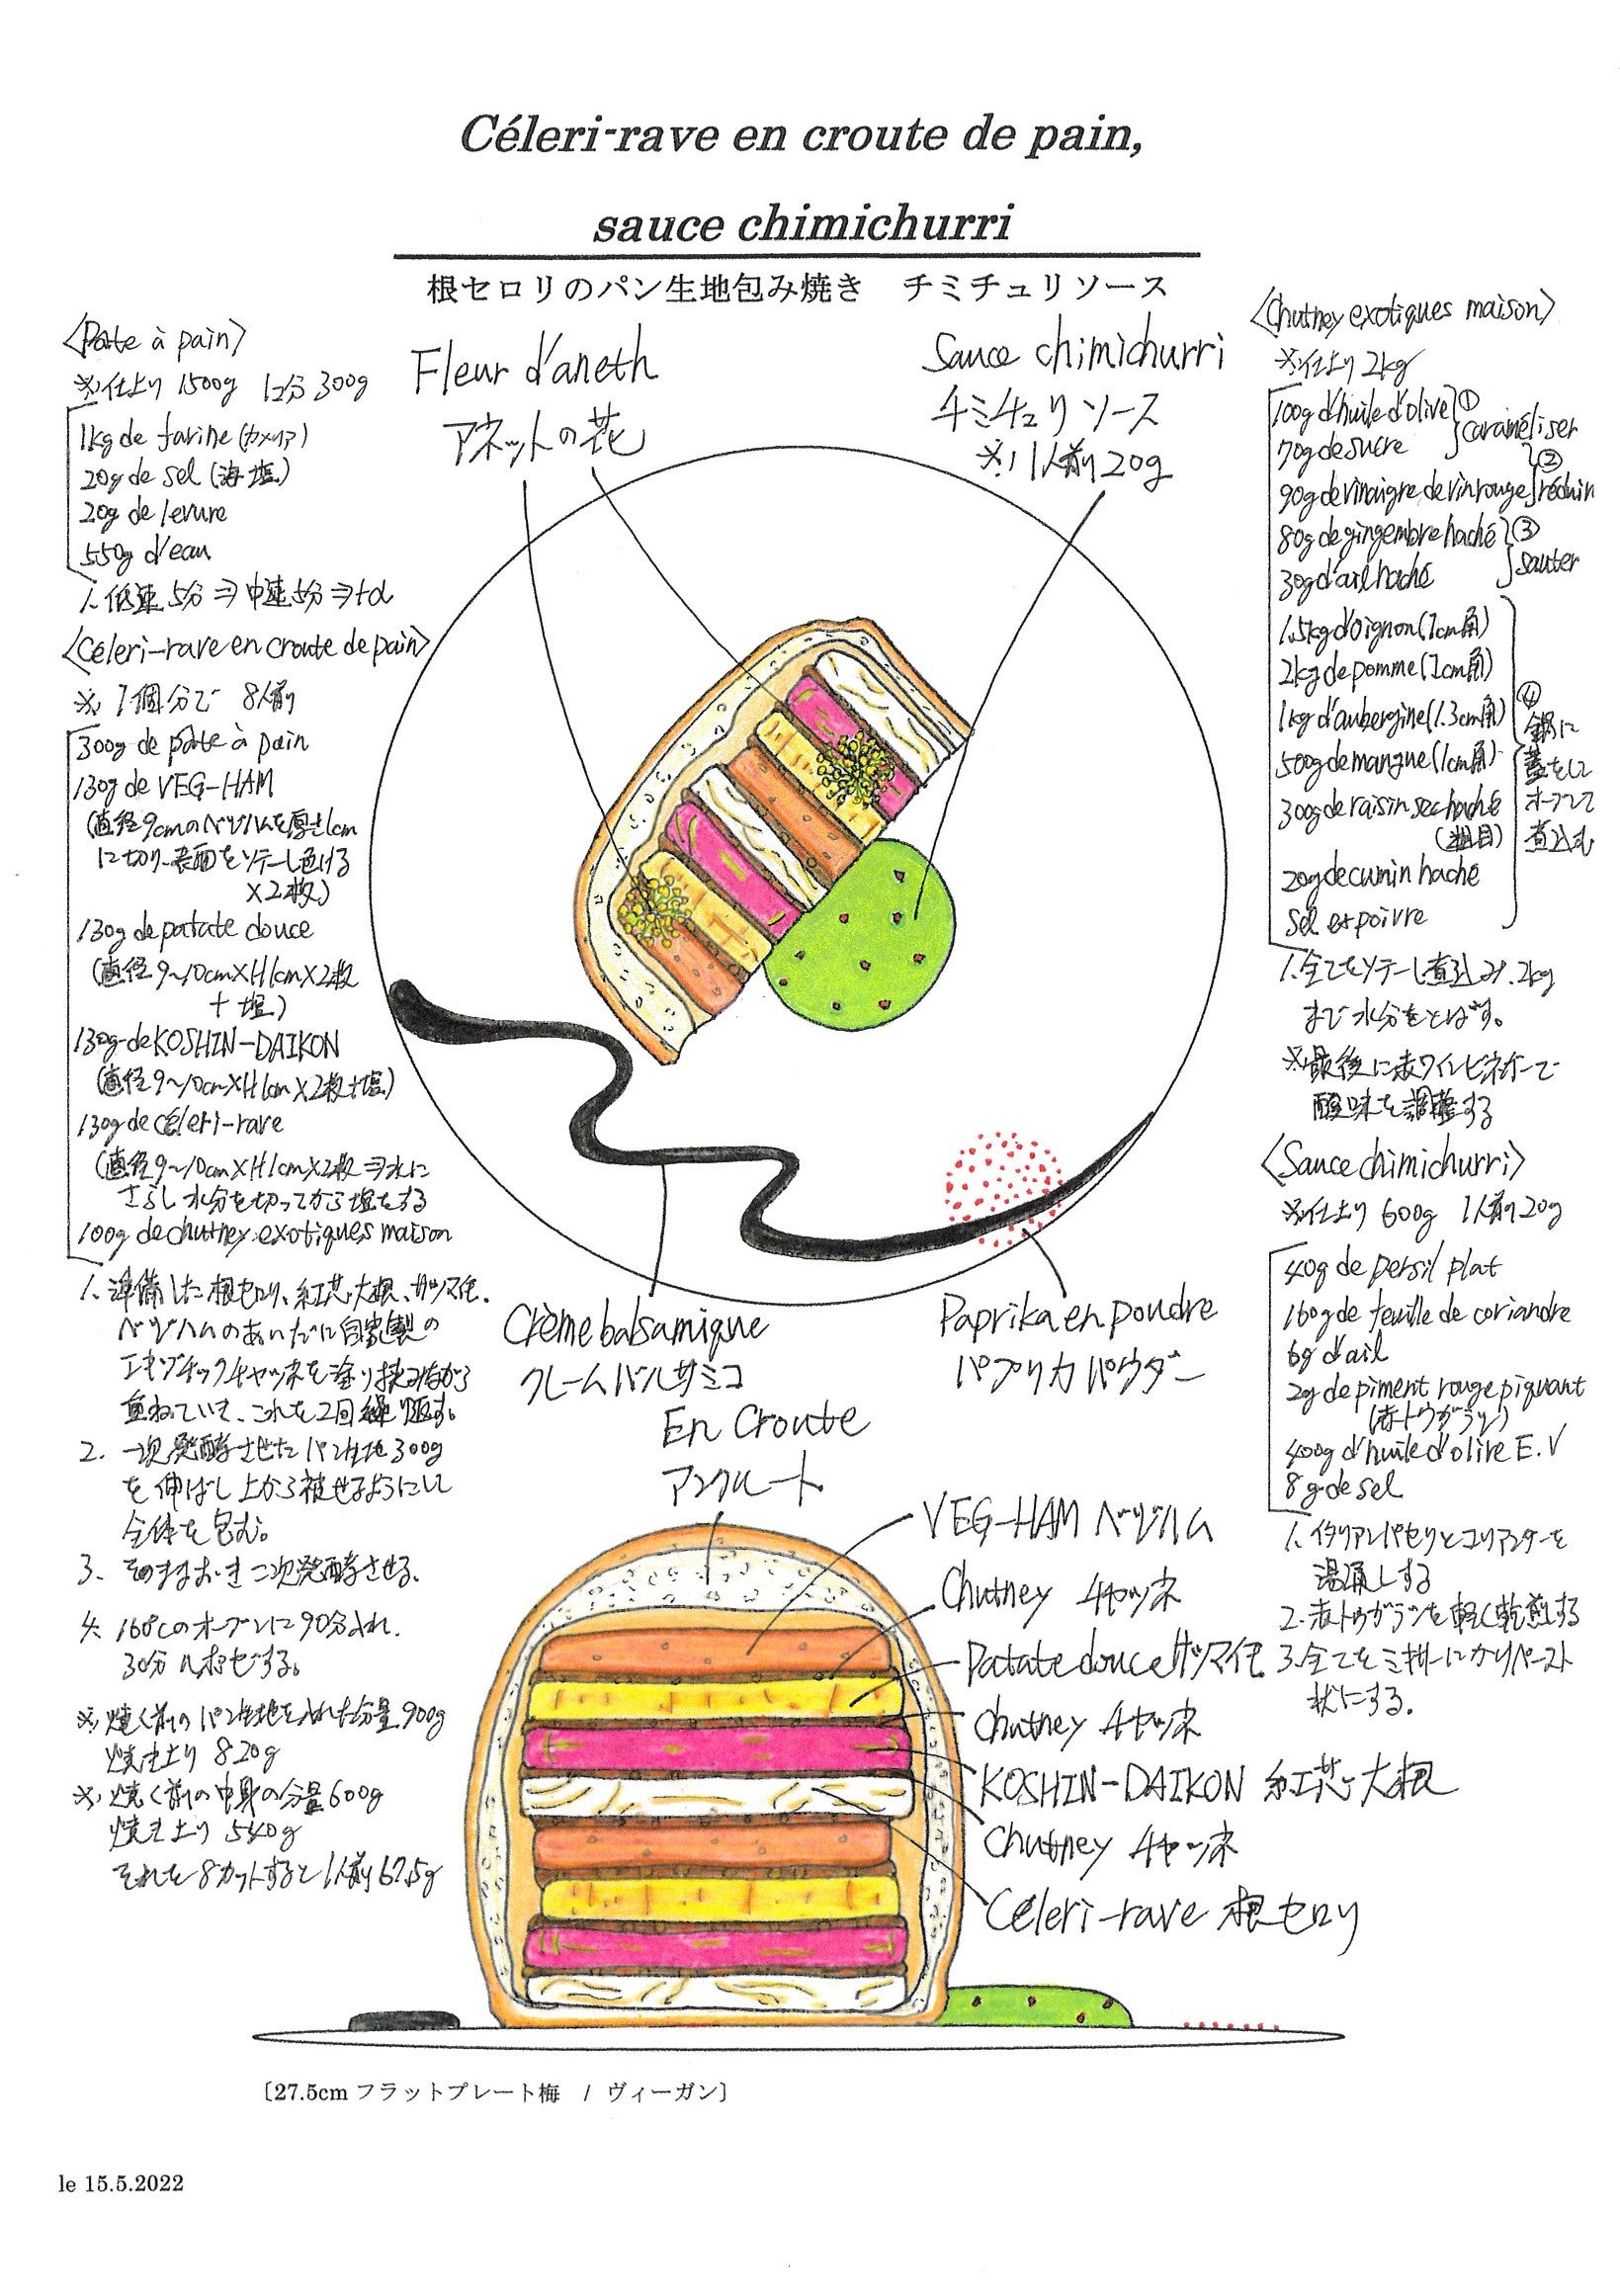 Céleri-rave en croute de pain,
sauce chimichurri
根セロリのパン生地包み焼き チミチュリソース
〈Pate à pain〉
※仕上り 1500g 1コ分 300g
1kg de farine (カメリア)
20g de sel (海塩)
20g de levure
550g d'eau
1. 低速5分⇒中速5分⇒+α
〈Céleri-rave en croute de pain〉
※1個分で 8人前
300g de pâte à pain
130g de VEG-HAM
(直径9cmのベジハムを厚さ1cm
に切り表面をソテーし色付ける
×2枚)
130g de patate douce
(直径9~10cm×H1cm×2枚
+塩)
130g de KOSHIN-DAIKON
(直径9~10cm×H1cm×2枚+塩)
130g de céleri-rave
(直径9~10cm×H1cm×2枚⇒水に
さらし水分を切ってから塩をする
100g de chutney exotiques maison
1. 準備した根セロリ、紅芯大根、サツマイモ、
ベジハムのあいだに自家製の
エキゾチックチャツネを塗り挟みながら
重ねていき、これを2回繰り返す。
2. 一次発酵させたパン生地300g
を伸ばし上から被せるようにして
全体を包む。
3. そのままおき二次発酵させる。
4. 160℃のオーブンに90分入れ、
30分ルポゼする。
※焼く前のパン生地を入れた分量900g
焼き上り 820g
※焼く前の中身の分量600g
焼き上り 540g
それを8カットすると1人前67.5g
Fleur d'aneth
アネットの花
Sauce chimichurri
チミチュリソース
※1人前20g
Crème balsamique
クレームバルサミコ
Paprika en poudre
パプリカパウダー
En Croute
アンクルート
VEG-HAM ベジハム
Chutney チャツネ
Patate douce サツマイモ
Chutney チャツネ
KOSHIN-DAIKON 紅芯大根
Chutney チャツネ
Céleri-rave 根セロリ
〈Chutney exotiques maison〉
※仕上り 2kg
100g d'huile d'olive ①
70g de sucre caraméliser
90g de vinaigre de vin rouge ② réduir
80g de gingembre haché ③
30g d'ail haché sauter
1.5kg d'oignon (1cm角)
2kg de pomme (1cm角)
1kg d'aubergine (1.3cm角)
500g de mangue (1cm角)
300g de raisin sec haché
(粗目)
20g de cumin haché
Sel et poivre
④
鍋に
蓋をして
オーブンで
煮込む
1. 全てをソテーし煮込み、2kg
まで水分をとばす。
※最後に赤ワインビネガーで
酸味を調整する
〈Sauce chimichurri〉
※仕上り 600g 1人前20g
40g de persil plat
160g de feuille de coriandre
6g d'ail
2g de piment rouge piquant
(赤トウガラシ)
400g d'huile d'olive E.V
8g de sel
1. イタリアンパセリとコリアンダーを
湯通しする
2. 赤トウガラシを軽く乾煎する
3. 全てをミキサーにかけペースト
状にする。
〔27.5cm フラットプレート梅 / ヴィーガン〕
le 15.5.2022